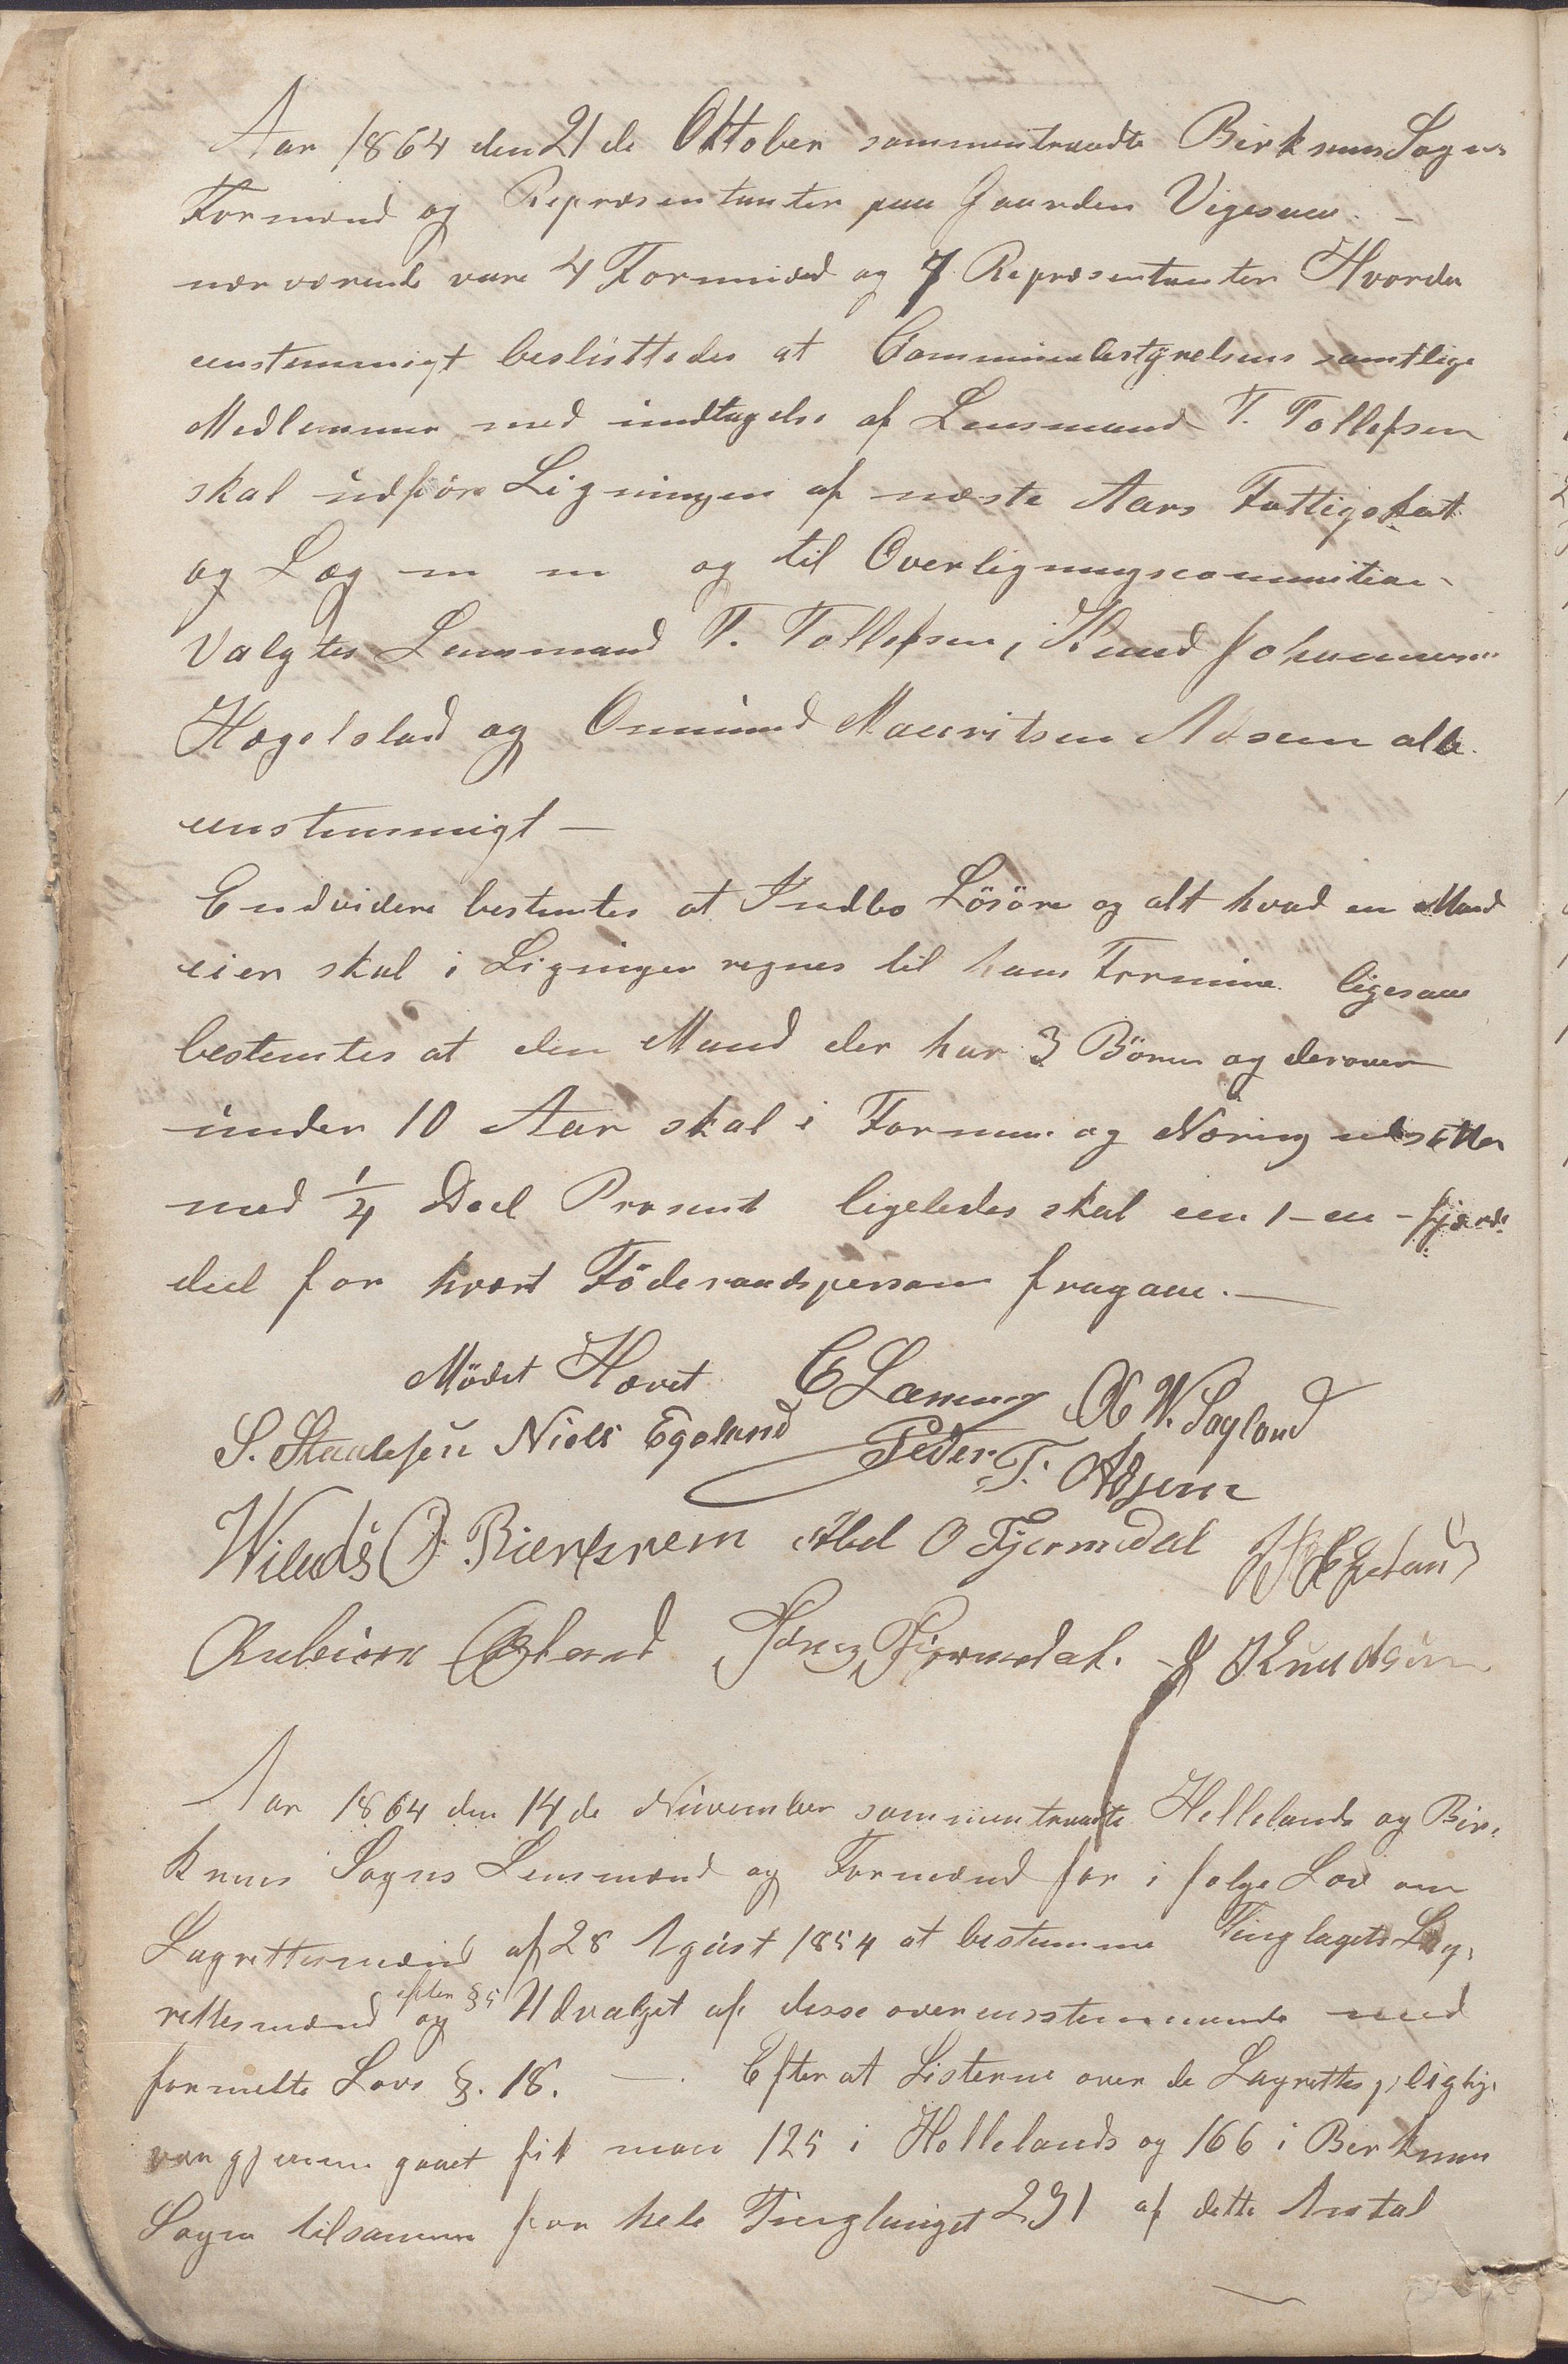 Aar 1864 den 21de Oktober sammentraadte Birkrem Sogns
Formænd og Repræsentanter paa Gaarden Vigesaae. —
nærværende vare 4 Formænd og 7 Repræsentanter Hvorda
eenstemmigt besluttedes at Communebestyrelsens samtlige
Medlemmer med indtagelse af Lensmand T. Tollefsen
skal udføre Ligningen af næste Aars Fattigskat
og Læg m m og til Overligningscommition
Valgtes Lensmand T. Tollefsen, Knud Johannesen
Hægelstad og Ommund Mauritsen Adsen alle
eenstemmigt —
Endvidere bestemtes at Indbo Lösöre og alt hvad en Mand
eier skal i Ligningen regnes til hans Formue ligesaa
bestemtes at den Mand der har 3 Börn og derover
under 10 Aar skal i Formue og Næring nedsættes
med 1/4 Deel Prosent ligeledes skal een 1-en-fjærde
deel for hvært Föderaadsperson fragaae. —
Mödet Hævet C Læning O W. Sagland
S. Staalesen Niels Egeland Peder T. Adsen
Wileds O. Bierkrem Abel O Fjermedal
Rubiørn Fjermedal. J Knudsen
Aar 1864 den 14de November sammentraadte Hellelands og Bir-
krems Sogns Lensmænd og Formænd for i følge Lov om
Lagrettesmænd af 28 Agust 1854 at bestemme Tinglagets Lag-
rettesmænd efter § 5 og Udvalget af disse overensstemmende med
formelte Lovs §. 18. — Efter at Listerne over de Lagrettespligtige
var gjennemgaaet fik man 125 i Hellelands og 166 i Berkrem
Sogn tilsammen for hele Tinglauget 291 af dette Antal